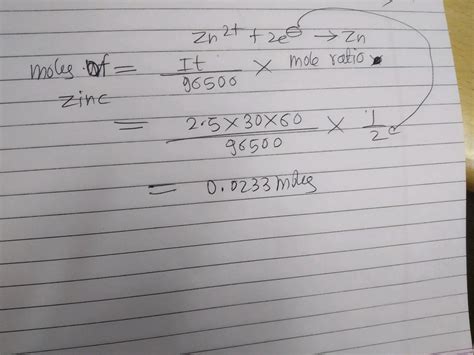 Zn²⁺ + 2e⊖ → Zn
moles of = It/96500 × mole ratio
zinc
= 2.5×30×60/96500 × 1/2
= 0.0233 moles